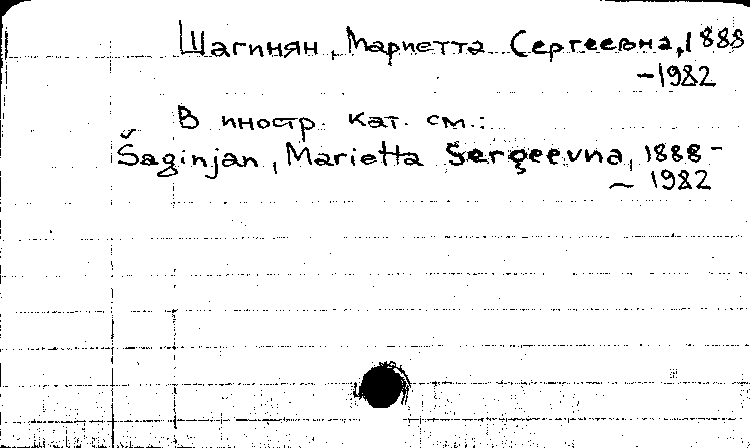 Шагинян, Мариетта Сергеевна, 1888
-1982
В иностр. кат. см.:
Šaginjan, Marietta Sergeevna, 1888-
- 1982